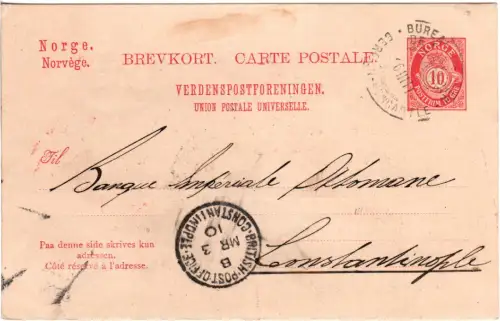 Norge.
Norvège.
BREVKORT. CARTE POSTALE.
NORGE
10
VERDENSPOSTFORENINGEN.
UNION POSTALE UNIVERSELLE.
Til
Banque Impériale Ottomane
Constantinople
BRITISH·POST OFFICE·CONSTANTINOPLE·
B
3
MR
10
Paa denne side skrives kun
adressen.
Côté réservé à l'adresse.